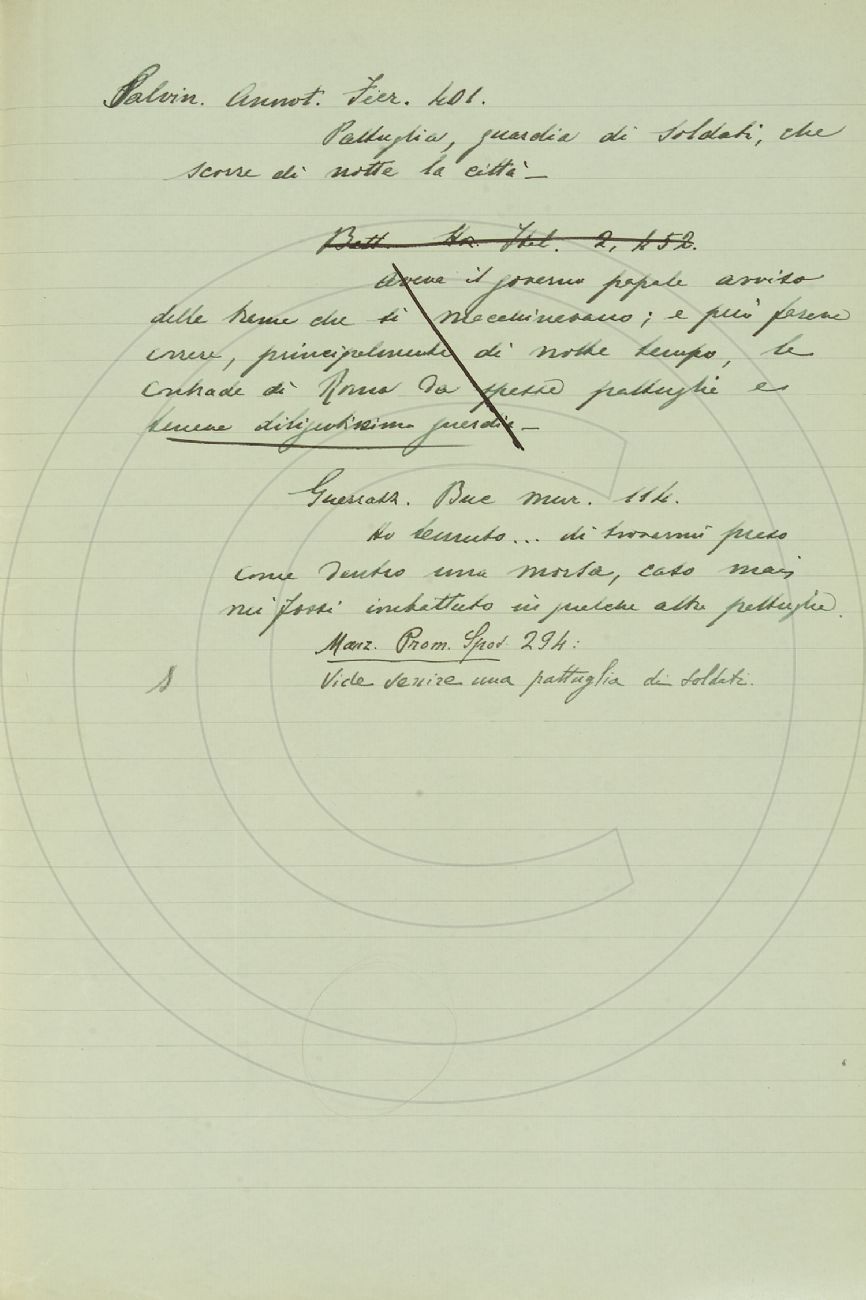 Salvin. Annot. Fier. 401.
Pattuglia, guardia di soldati, che
scorre di notte la città —
Bott. St. Ital. 2, 452.
Aveva il governo papale avviso
delle trame che si macchinavano; e però faceva
correre, principalmente di notte tempo, le
contrade di Roma da spesse pattuglie e
teneva diligentissima guardia —
Guerrazz. Buc. mur. 114.
Ho temuto... di trovarmi preso
come dentro una morsa, caso mai
mi fossi imbattuto in qualche altra pattuglia.
Manz. Prom. Spos. 294:
S Vide venire una pattuglia di soldati.